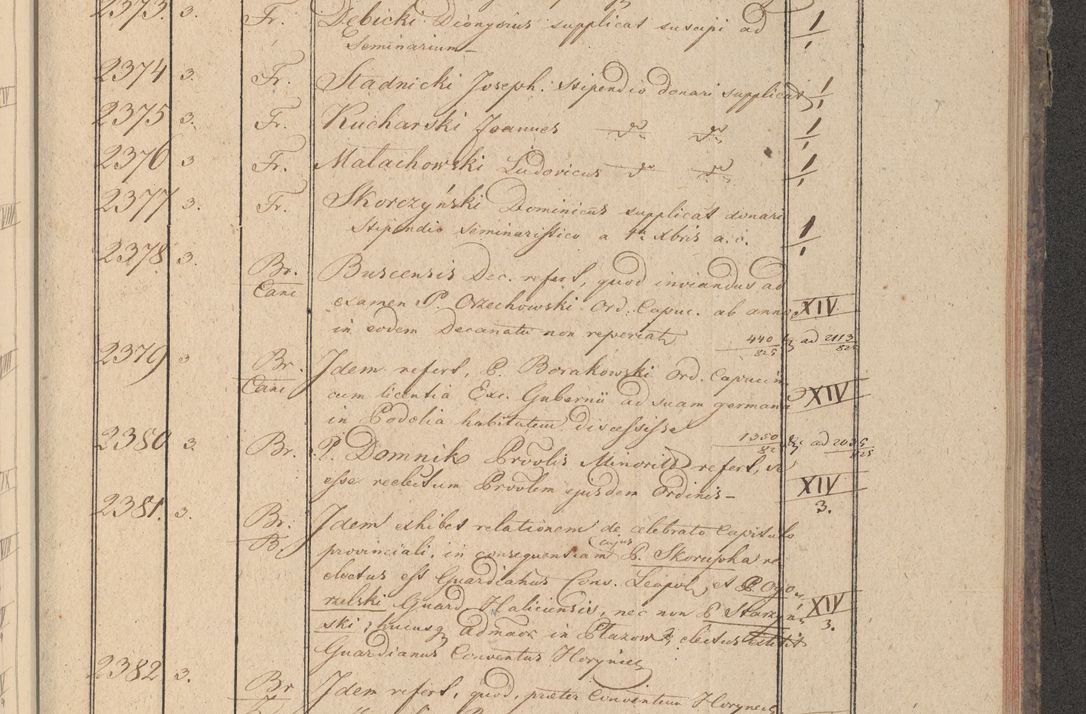 2373. 3. Fr. Dębicki Dionysius supplicat suscipi ad 1/1
Seminarium
2374 3. Fr. Stadnicki Joseph. Stipendio donari supplicat 1/1
2375 3. Fr. Kucharski Joannes dto dto 1/1
2376 3 Fr. Małachowski Ludovicus dto dto 1/1
2377 3. Fr. Skorczyński Dominicus supplicat donari
Stipendio Seminaristico a 1a Xbris a. c. 1/1
2378 3. Br. Buscensis Dec. refert, quod inviandus ad
Cane examen P. Orzechowski Ord. Capuc. ab anno XIV
in eodem Decanatu non reperiat 440/825 ad 2113/825
2379 3 Br. Idem refert, P. Borakowski Ord. Capucin
Cane cum licentia Exc. Gubernii ad suam germana XIV
in Podolia habitatem discessisse
2380 3. Br. P. Domnik Provlis Minorit refert, se 1350/82 ad 2035/825
esse reelectum Provlem ejusdem Ordinis XIV
3.
2381. 3. Br. Idem exhibet relationem de celebrato Capitulo
provinciali, in cujus consequentiam P. Skorupka re
electus est Guardianus Conv. Leopol, et P. Ogo
rzelski Guard Haliciensis, nec non P Starzyń XIV
ski, hucusq Admaor in electus 3.
Guardianus Conventus Horyniec
2382 3. Br Idem refert, quod, praeter Conventum Horynec